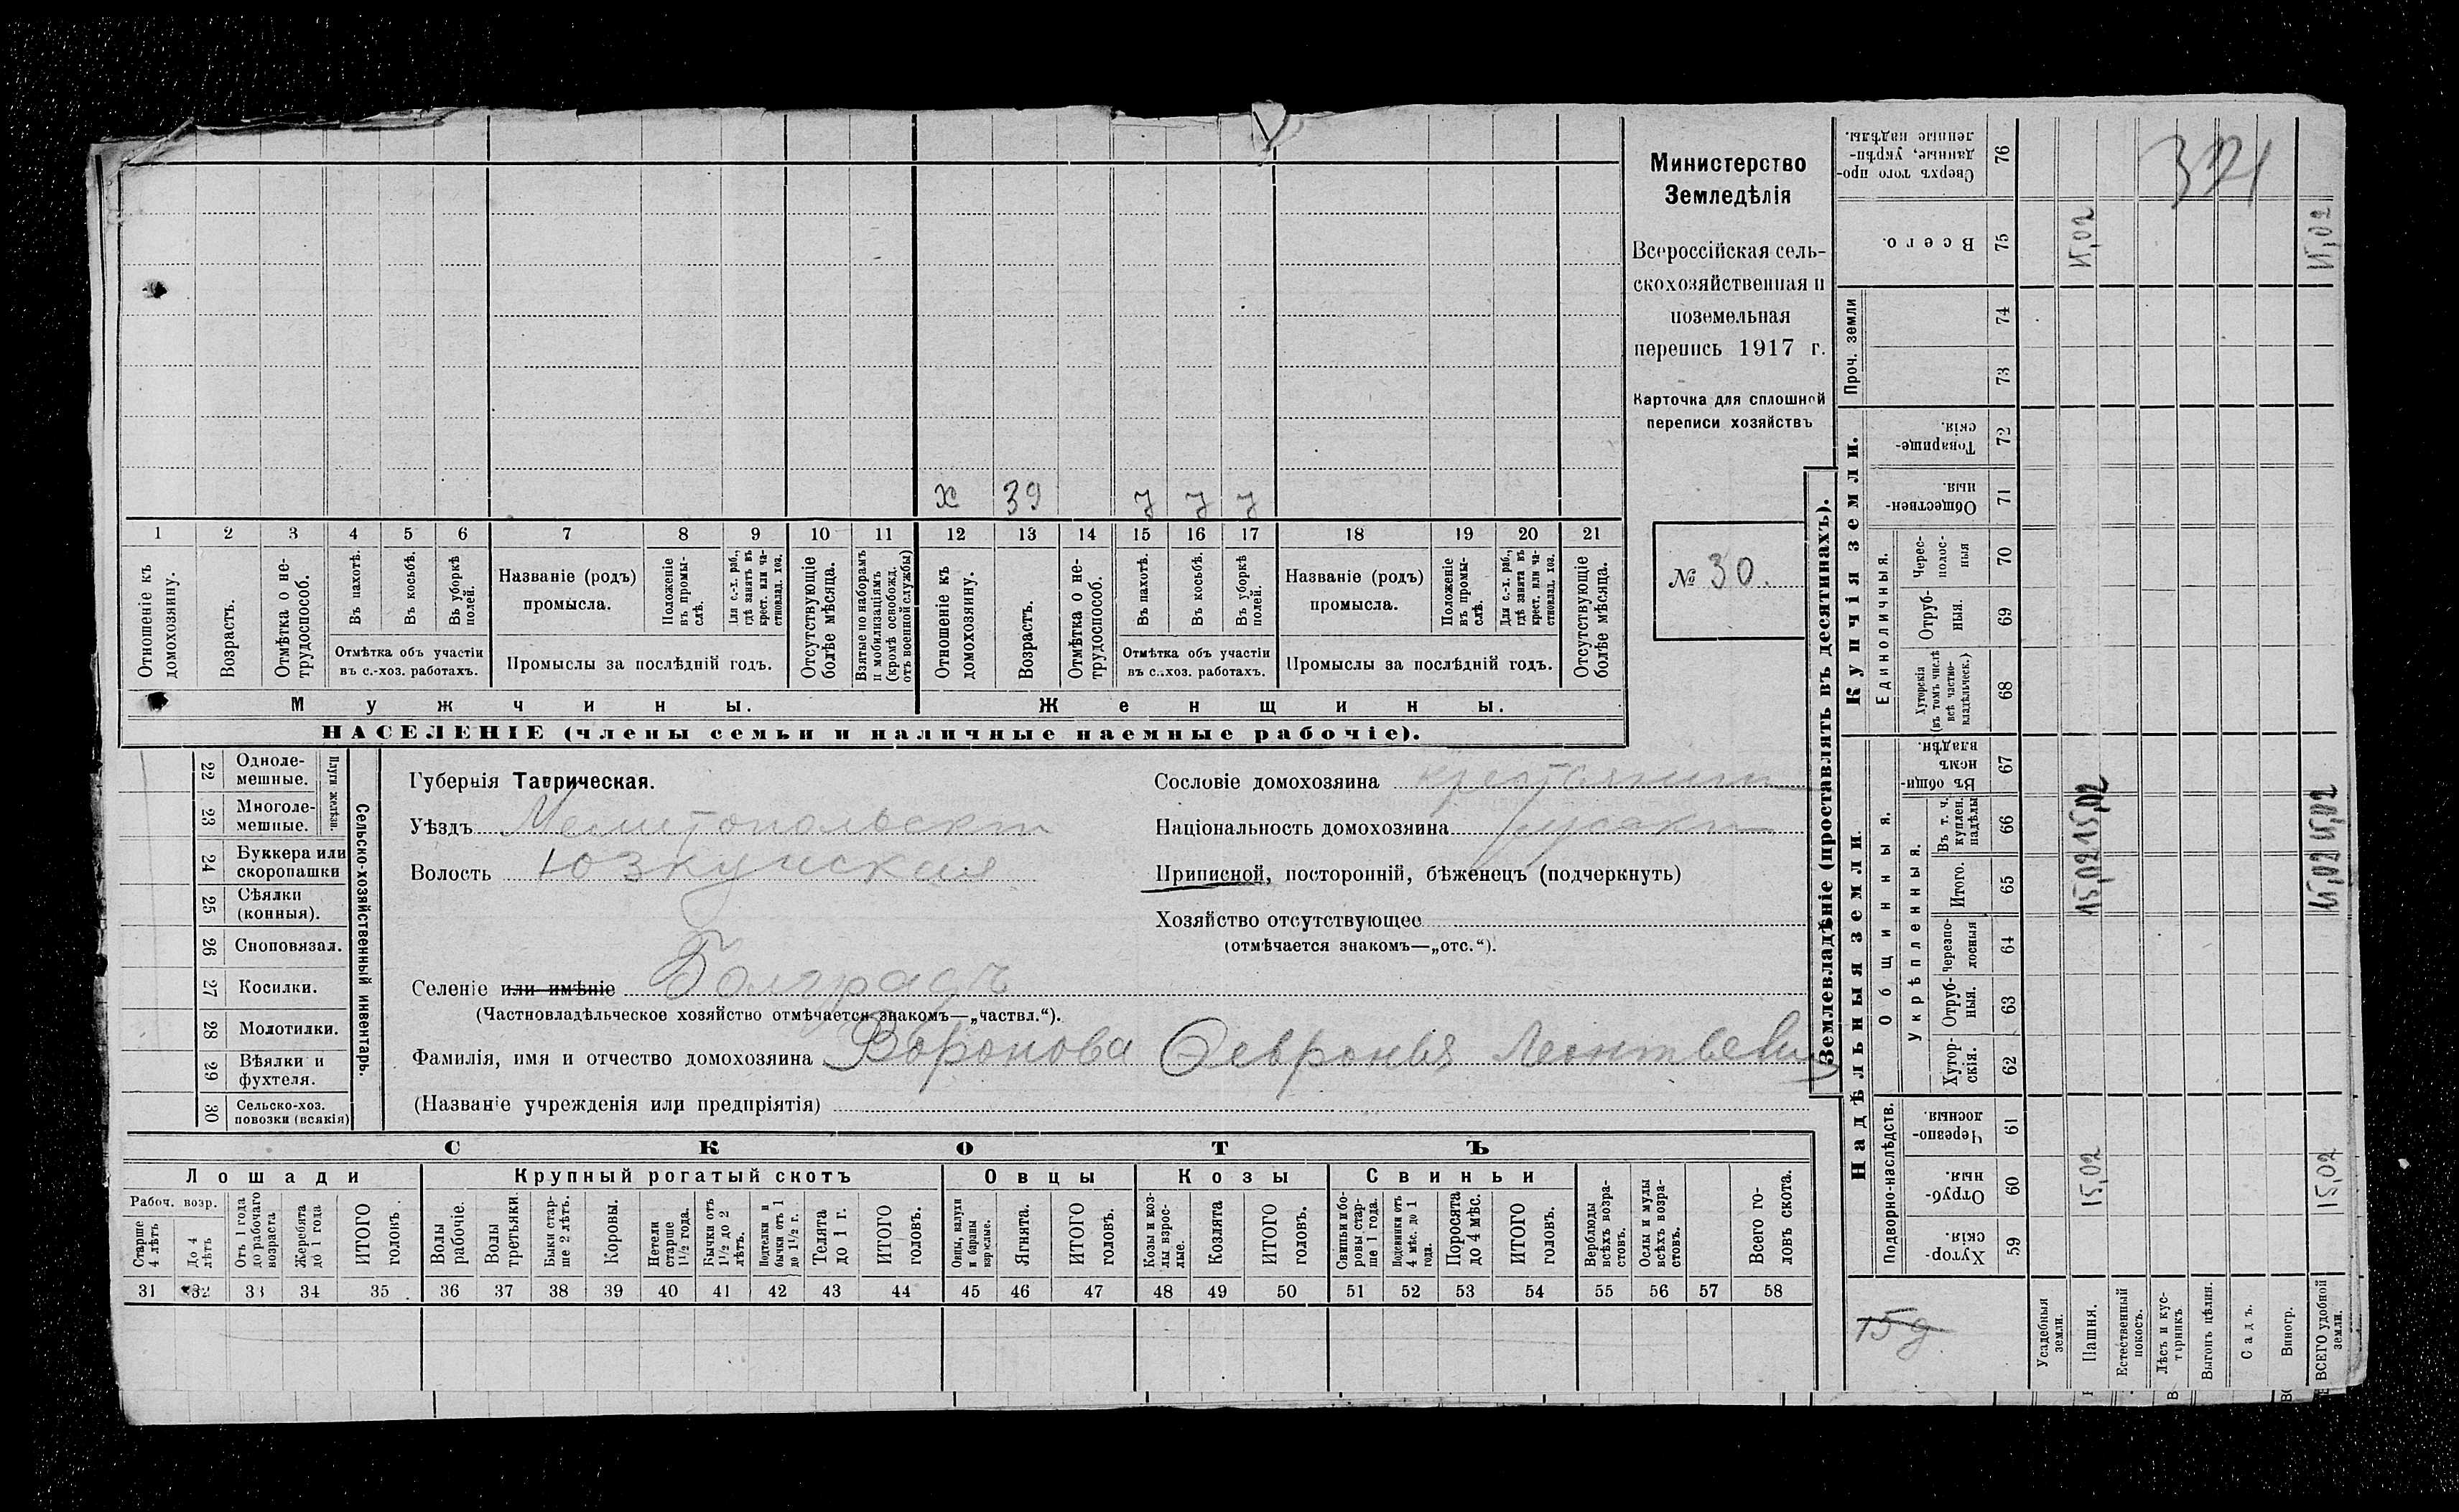 х 39 7 7 7
1 2 3 4 5 6 7 8 9 10 11 12 13 14 15 16 17 18 19 20 21
Отношеніе къ домохозяину.
Возрастъ.
Отмѣтка о не-
трудоспособ.
Въ пахотѣ.
Въ косьбѣ.
Въ уборкѣ
полей.
Отмѣтка объ участіи
въ с.-хоз. работахъ.
Названіе (родъ)
промысла.
Положеніе
въ промы-
слѣ.
Для с.-х. раб.,
гдѣ занятъ въ
крест. или ча-
стновлад. хоз.
Промыслы за послѣдній годъ.
Отсутствующіе
болѣе мѣсяца.
Взятые по наборамъ
и мобилизаціямъ
(кромѣ освобожд.
отъ военной службы)
Отношеніе къ
домохозяину.
Возрастъ.
Отмѣтка о не-
трудоспособ.
Въ пахотѣ.
Въ косьбѣ.
Въ уборкѣ
полей.
Отмѣтка объ участіи
въ с.-хоз. работахъ.
Названіе (родъ)
промысла.
Положеніе
въ промы-
слѣ.
Для с.-х. раб.,
гдѣ занята въ
крест. или ча-
стновлад. хоз.
Промыслы за послѣдній годъ.
Отсутствующіе
болѣе мѣсяца.
Мужчины.
Женщины.
НАСЕЛЕНІЕ (члены семьи и наличные наемные рабочіе).
Министерство
Земледѣлія
Всероссійская сель-
скохозяйственная и
поземельная
перепись 1917 г.
Карточка для сплошной
переписи хозяйствъ
№ 30.
22 Одноле-
мешные.
23 Многоле-
мешные.
Плуги желѣзн.
24 Буккера или
скоропашки
25 Сѣялки
(конныя).
26 Сноповязал.
27 Косилки.
28 Молотилки.
29 Вѣялки и
фухтеля.
30 Сельско-хоз.
повозки (всякія)
Сельско-хозяйственный инвентарь.
Губернія Таврическая.
Уѣздъ Мелитопольскій
Волость Юзкуйская
Селеніе или имѣніе Болградъ
(Частновладѣльческое хозяйство отмѣчается знакомъ—„частвл.“).
Фамилія, имя и отчество домохозяина Воронова Февронья Леонтьевн
(Названіе учрежденія или предпріятія)
Сословіе домохозяина крестьянин
Національность домохозяина русский
Приписной, посторонній, бѣженецъ (подчеркнуть)
Хозяйство отсутствующее
(отмѣчается знакомъ—„отс.“).
СКОТЪ
Лошади
Крупный рогатый скотъ
Овцы
Козы
Свиньи
Рабоч. возр.
Старше
4 лѣтъ
До 4
лѣтъ
Отъ 1 года
до рабочаго
возраста
Жеребята
до 1 года
ИТОГО
головъ
Волы
рабочіе.
Волы
третьяки.
Быки стар-
ше 2 лѣтъ.
Коровы.
Нетели
старше
1½ года.
Бычки отъ
1½ до 2
лѣтъ.
Подтелки и
бычки отъ 1
до 1½ г.
Телята
до 1 г.
ИТОГО
головъ.
Овцы, валухи
и бараны
взрослые.
Ягнята.
ИТОГО
головъ.
Козы и коз-
лы взрос-
лые.
Козлята
ИТОГО
головъ.
Свиньи и бо-
ровы стар-
ше 1 года.
Подсвинки отъ
4 мѣс. до 1
года.
Поросята
до 4 мѣс.
ИТОГО
головъ.
Верблюды
всѣхъ возра-
стовъ.
Ослы и мулы
всѣхъ возра-
стовъ.
Всего го-
ловъ скота.
31 32 33 34 35 36 37 38 39 40 41 42 43 44 45 46 47 48 49 50 51 52 53 54 55 56 57 58
Землевладѣніе (проставлять въ десятинахъ).
Купчія земли.
Проч. земли
Единоличныя.
Надѣльныя земли
Общинныя.
Укрѣпленныя.
Подворно-наслѣдств.
Сверхъ того про-
данные, укрѣп-
ленные надѣлы.
76
Всего.
75
15,02
15,02
74
73
Товарище-
скія.
72
Обществен-
ныя.
71
Черес-
полос-
ныя
70
Отруб-
ныя.
69
Хуторскія
(въ томъ числѣ
всѣ частно-
владѣльческ.)
68
Въ общин-
номъ
владѣн.
67
Въ т. ч.
куплен.
надѣлы
66
15,02
15,02
Итого.
65
15,02
15,02
Черезпо-
лосныя
64
Отруб-
ныя.
63
Хутор-
скія.
62
Черезпо-
лосныя.
61
Отруб-
ныя.
60
15,02
15,02
Хутор-
скія.
59
15 д.
Усадебныя
земли.
Пашня.
Естественный
покосъ.
Лѣсъ и кус-
тарникъ
Выгонъ цѣлин.
Садъ.
Виногр.
ВСЕГО удобной
земли.